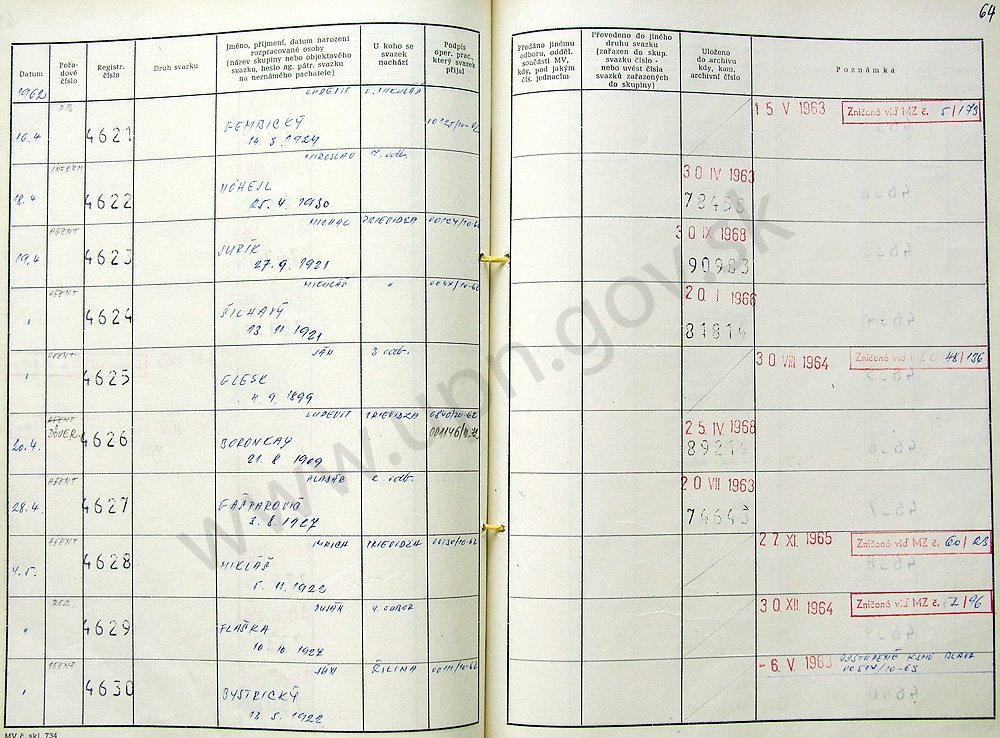 64
Datum
Pořa-
dové
číslo
Registr.
číslo
Druh svazku
Jméno, příjmení, datum narození
rozpracované osoby
(název skupiny nebo objektového
svazku, heslo ag. pátr. svazku
na neznámého pachatele)
U koho se
svazek
nachází
Podpis
oper. prac.,
který svazek
přijal
Předáno jinému
odboru, odděl.
součásti MV,
kdy, pod jakým
čís. jednacím
Převedeno do jiného
druhu svazku
(zařazen do skup.
svazku číslo -
nebo uvést čísla
svazků zařazených
do skupiny)
Uloženo
do archivu
kdy, kam,
archivní číslo
Poznámka
1962
16.4 4621 ĽUDEVIT L. MIKULÁŠ
14. 3. 1924
15 V 1963 Zničeno viď MZ č. 5/173
18.4 INFORM 4622 MIROSLAV 7. odb.
25. 4. 1930
30 IV 1963
19.4 AGENT 4623 MICHAL PRIEVIDZA
JURÍK
27. 9. 1921
30 IX. 1968
90983
" AGENT 4624 MIKULÁŠ "
ŠICHAVÝ
13. 11. 1921
20 I 1966
81814
" AGENT 4625 JÁN 3. odb.
GLESK
4. 9. 1899
30 VIII 1964 Zničené viď MZ č. 48/136
20.4. AGENT DÔVER. 4626 ĽUDEVIT PRIEVIDZA
BORONKAY
21. 8. 1909
25. IV. 1968
28.4. AGENT 4627 2. odb.
GAŠPAROVIČ
3. 8. 1927
20 VII 1963
74643
4.5. AGENT 4628 IMRICH PRIEVIDZA 00130/10-62
MIKLÁŠ
5. 11. 1922
27. XI. 1965 Zničené viď MZ č. 60/23
" REZ. 4629 DUŠAN
FLAŠKA
10. 10. 1927
30 XII. 1964 Zničené viď MZ č. 7/96
" AGENT 4630 JÁN ŽILINA
BYSTRICKÝ
13. 5. 1922
- 6. V. 1963
MV č. skl. 734
www.upn.gov.sk